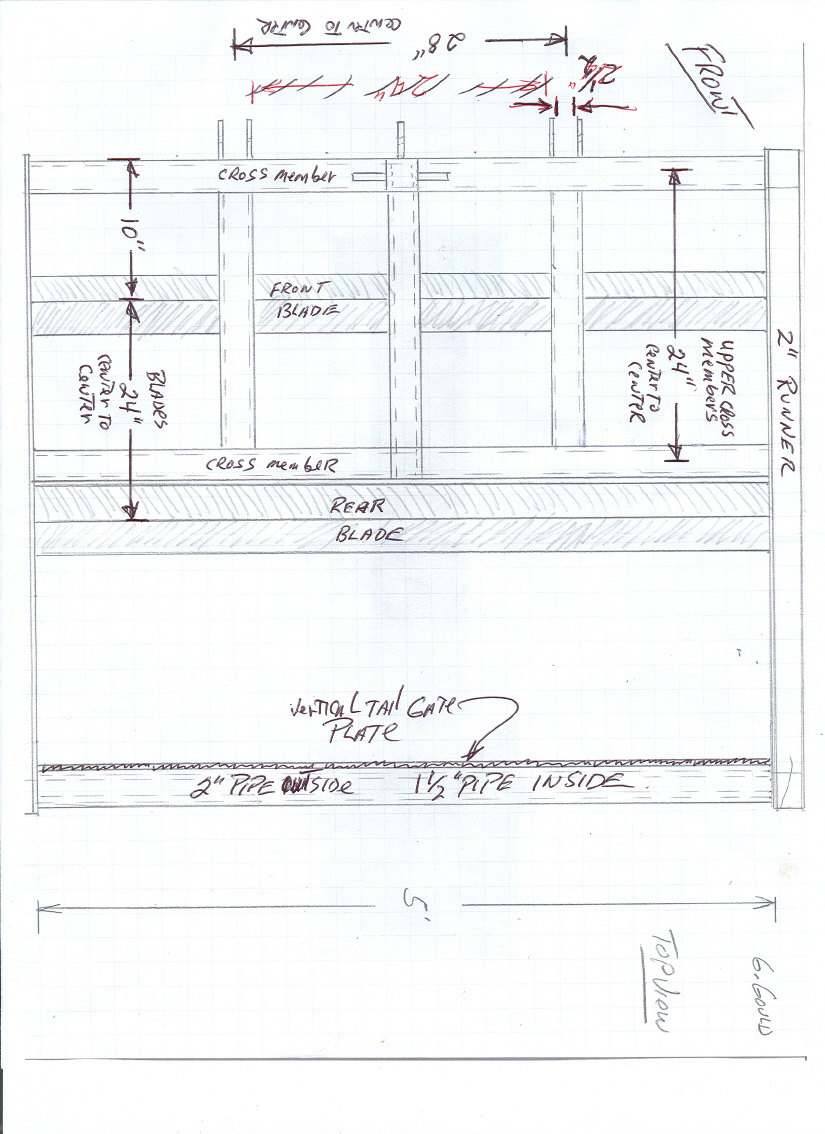 CENTER TO CENTER
28"
24"
2 1/2"
FRONT
CROSS member
10"
FRONT
BLADE
BLADES
24"
CENTER TO
CENTER
UPPER CROSS
members
24"
CENTER TO
CENTER
2" RUNNER
CROSS member
REAR
BLADE
verTICAL TAIL GATE
PLATE
2" PIPE OUTSIDE 1 1/2" PIPE INSIDE
5'
TOP VIEW
G. GOULD